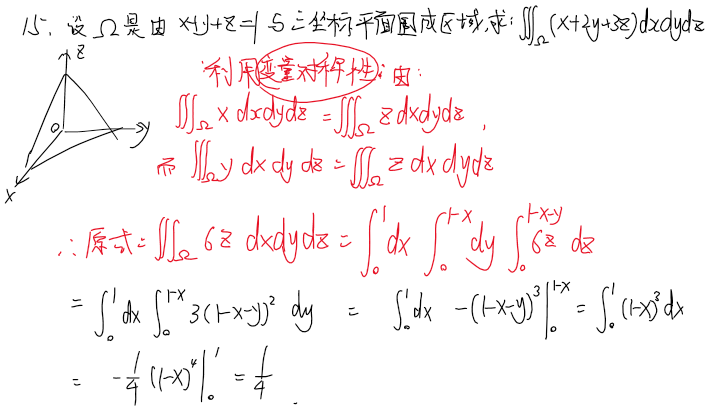 15. 设Ω是由 x+y+z=1 与三坐标平面围成区域,求:∭_Ω(x+2y+3z)dxdydz
z
O
y
x
利用变量对称性:由:
∭_Ω x dxdydz = ∭_Ω z dxdydz ,
而 ∭_Ω y dx dy dz = ∭_Ω z dx dy dz
∴原式 = ∭_Ω 6z dxdydz = ∫_0^1 dx ∫_0^{1-x} dy ∫_0^{1-x-y} 6z dz
= ∫_0^1 dx ∫_0^{1-x} 3(1-x-y)^2 dy = ∫_0^1 dx -(1-x-y)^3 |_0^{1-x} = ∫_0^1 (1-x)^3 dx
= -1/4 (1-x)^4 |_0^1 = 1/4 .